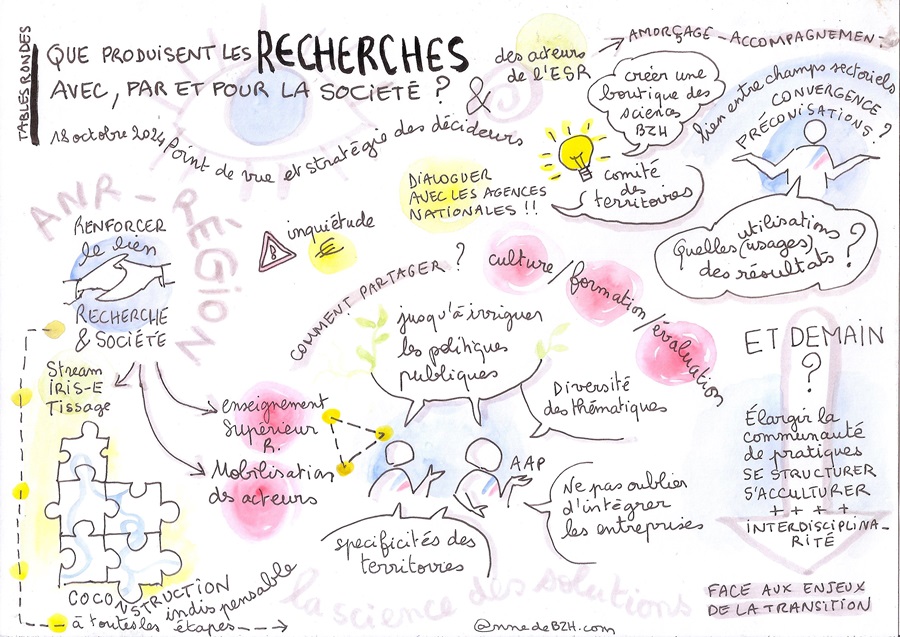 TABLES RONDES
QUE PRODUISENT LES RECHERCHES
AVEC, PAR ET POUR LA SOCIÉTÉ ?
&
18 octobre 2024
Point de vue et stratégie des décideurs
des acteurs
de l'ESR
AMORÇAGE - ACCOMPAGNEMENT.
créer une
boutique des
sciences
BZH
comité
des
territoires
lien entre champs sectoriels
CONVERGENCE
PRÉCONISATIONS ?
DIALOGUER
AVEC LES AGENCES
NATIONALES !!
Quelles utilisations
(usages)
des résultats ?
ANR - RÉGION
RENFORCER
le lien
RECHERCHE
& SOCIÉTÉ
inquiétude
€
COMMENT PARTAGER ?
culture / formation / évaluation
jusqu'à irriguer
les politiques
publiques
Diversité
des thématiques
Stream
IRIS-E
Tissage
enseignement
Supérieur
R.
Mobilisation
des acteurs
AAP
Ne pas oublier
d'intégrer
les entreprises
specificités des
territoires
COCONSTRUCTION
indispensable
à toutes les étapes
la science des solutions
ET DEMAIN
?
Élargir la
communauté
de pratiques
SE STRUCTURER
S'ACCULTURER
+ + + +
INTERDISCIPLINA-
RITÉ
FACE AUX ENJEUX
DE LA TRANSITION
@nnedeBZH.com